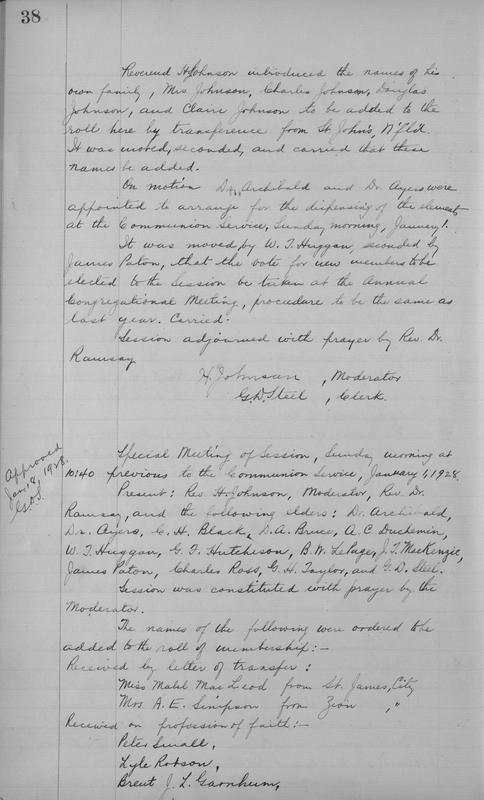 38
Reverend H. Johnson introduced the names of his
own family, Mrs Johnson, Charles Johnson, Douglas
Johnson, and Claire Johnson to be added to the
roll here by transference from St. John's, N'fld.
It was moved, seconded, and carried that these
names be added.
On motion Dr. Archibald and Dr. Ayers were
appointed to arrange for the dispensing of the elements
at the Communion Service, Sunday morning, January 1.
It was moved by W. T. Huggan, seconded by
James Paton, that the vote for new members to be
elected to the Session be taken at the Annual
Congregational Meeting, procedure to be the same as
last year. Carried.
Session adjourned with prayer by Rev. Dr.
Ramsay
H. Johnson, Moderator
G.D. Steel, Clerk.
Approved
Jan. 18, 1928.
G.D.S.
Special Meeting of Session, Sunday morning at
10:40 previous to the Communion Service, January 1, 1928.
Present: Rev. H. Johnson, Moderator, Rev. Dr.
Ramsay, and the following elders: Dr. Archibald,
Dr. Ayers, C. H. Black, D.A. Bruce, A.C. Duchemin,
W. T. Huggan, G. F. Hutcheson, B.W. LePage, J.T. MacKenzie,
James Paton, Charles Ross, G. H. Taylor, and G. D. Steel.
Session was constituted with prayer by the
Moderator.
The names of the following were ordered to be
added to the roll of membership:-
Received by letter of transfer:
Miss Mabel MacLeod from St. James, City
Mrs. A. E. Simpson from Zion "
Received on profession of faith:-
Peter Small,
Lyle Robson,
Brent J. L. Garnhum,